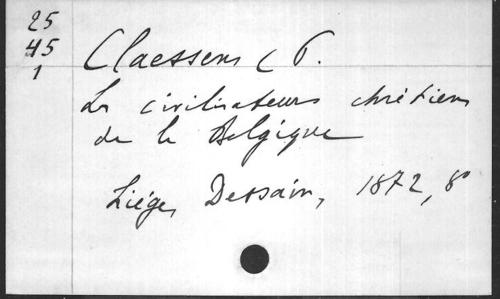 25
45
1
Claessens (P.
Les civilisateurs chrétiens
de la Belgique
Liége, Dessain, 1872, 8°